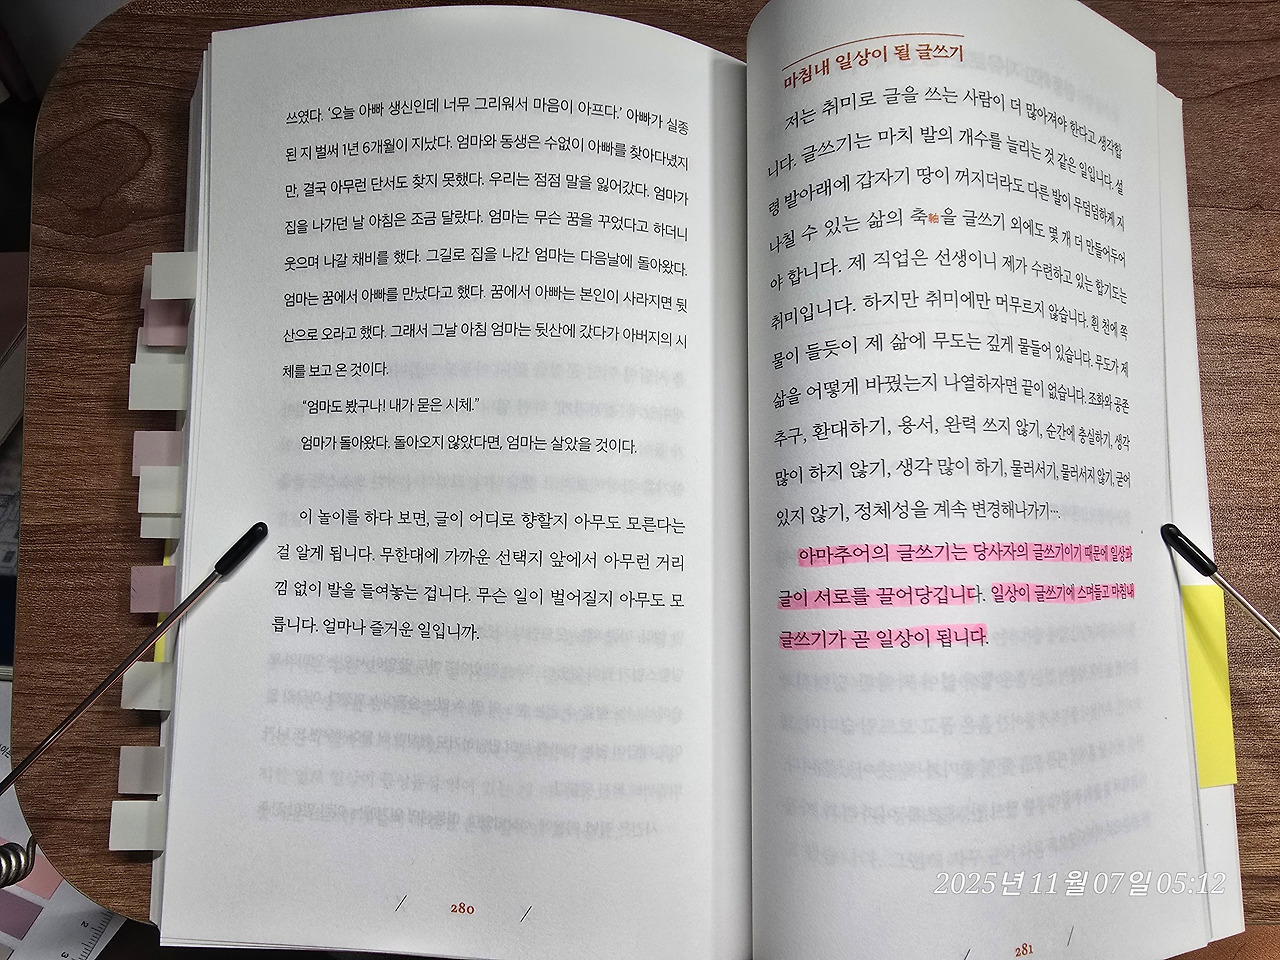 쓰였다. ‘오늘 아빠 생신인데 너무 그리워서 마음이 아프다.’ 아빠가 실종
된 지 벌써 1년 6개월이 지났다. 엄마와 동생은 수없이 아빠를 찾아다녔지
만, 결국 아무런 단서도 찾지 못했다. 우리는 점점 말을 잃어갔다. 엄마가
집을 나가던 날 아침은 조금 달랐다. 엄마는 무슨 꿈을 꾸었다고 하더니
웃으며 나갈 채비를 했다. 그길로 집을 나간 엄마는 다음날에 돌아왔다.
엄마는 꿈에서 아빠를 만났다고 했다. 꿈에서 아빠는 본인이 사라지면 뒷
산으로 오라고 했다. 그래서 그날 아침 엄마는 뒷산에 갔다가 아버지의 시
체를 보고 온 것이다.
“엄마도 봤구나! 내가 묻은 시체.”
엄마가 돌아왔다. 돌아오지 않았다면, 엄마는 살았을 것이다.
이 놀이를 하다 보면, 글이 어디로 향할지 아무도 모른다는
걸 알게 됩니다. 무한대에 가까운 선택지 앞에서 아무런 거리
낌 없이 발을 들여놓는 겁니다. 무슨 일이 벌어질지 아무도 모
릅니다. 얼마나 즐거운 일입니까.
280
마침내 일상이 될 글쓰기
저는 취미로 글을 쓰는 사람이 더 많아져야 한다고 생각합
니다. 글쓰기는 마치 발의 개수를 늘리는 것 같은 일입니다. 설
령 발아래에 갑자기 땅이 꺼지더라도 다른 발이 무덤덤하게 지
나칠 수 있는 삶의 축軸을 글쓰기 외에도 몇 개 더 만들어두어
야 합니다. 제 직업은 선생이니 제가 수련하고 있는 합기도는
취미입니다. 하지만 취미에만 머무르지 않습니다. 흰 천에 쪽
물이 들듯이 제 삶에 무도는 깊게 물들어 있습니다. 무도가 제
삶을 어떻게 바꿨는지 나열하자면 끝이 없습니다. 조화와 공존
추구, 환대하기, 용서, 완력 쓰지 않기, 순간에 충실하기, 생각
많이 하지 않기, 생각 많이 하기, 물러서기, 물러서지 않기, 굳어
있지 않기, 정체성을 계속 변경해나가기….
아마추어의 글쓰기는 당사자의 글쓰기이기 때문에 일상과
글이 서로를 끌어당깁니다. 일상이 글쓰기에 스며들고 마침내
글쓰기가 곧 일상이 됩니다.
281
2025년 11월 07일 05:12